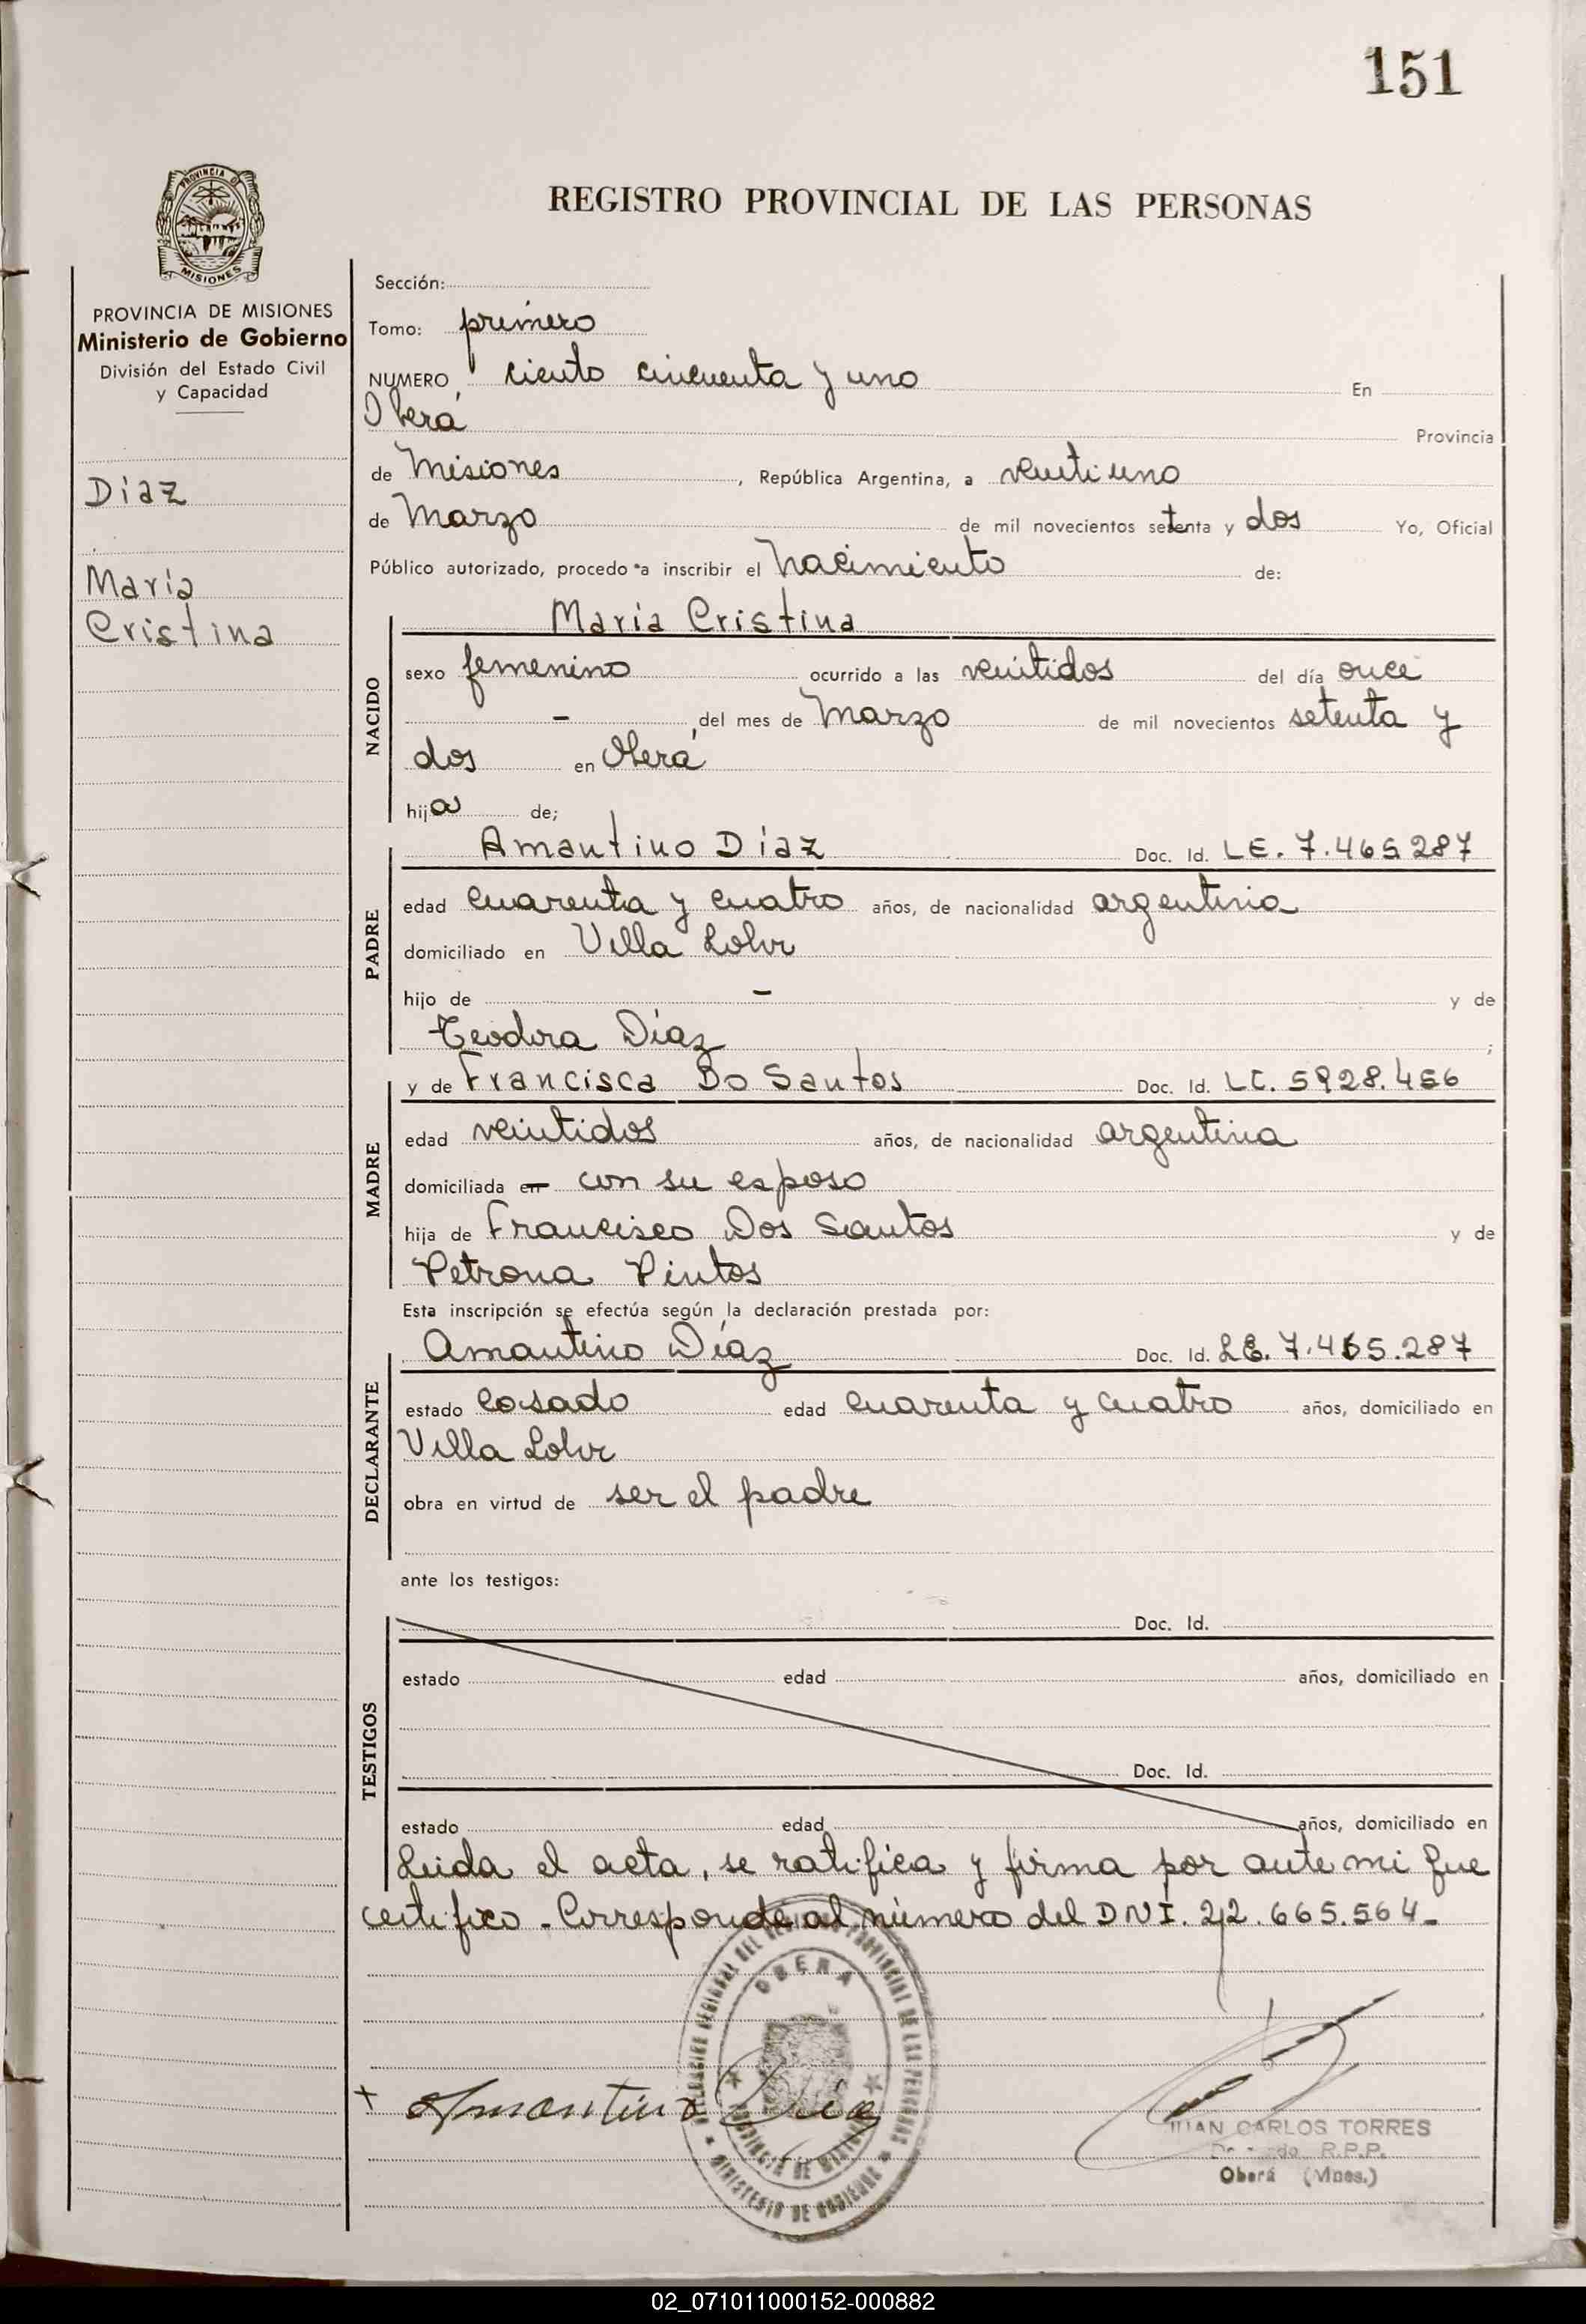 151
PROVINCIA DE
MISIONES
REGISTRO PROVINCIAL DE LAS PERSONAS
PROVINCIA DE MISIONES
Ministerio de Gobierno
División del Estado Civil
y Capacidad
Díaz
María
Cristina
Sección:
Tomo: primero
NUMERO ciento cincuenta y uno En
Oberá Provincia
de Misiones, República Argentina, a veintiuno
de Marzo de mil novecientos setenta y dos Yo, Oficial
Público autorizado, procedo a inscribir el Nacimiento de:
María Cristina
NACIDO
sexo femenino ocurrido a las veintidos del día once
- del mes de Marzo de mil novecientos setenta y
dos en Oberá
hija de;
Amantino Díaz Doc. Id. LE. 7.465287
PADRE
edad cuarenta y cuatro años, de nacionalidad argentina
domiciliado en Villa Lohr
hijo de - y de
Teodora Díaz ;
y de Francisca Do Santos Doc. Id. LC. 5928.456
MADRE
edad veintidos años, de nacionalidad argentina
domiciliada en con su esposo
hija de Francisco Dos Santos y de
Petrona Pintos
Esta inscripción se efectúa según la declaración prestada por:
Amantino Díaz Doc. Id. LE. 7.465.287
DECLARANTE
estado Casado edad cuarenta y cuatro años, domiciliado en
Villa Lohr
obra en virtud de ser el padre
ante los testigos:
Doc. Id.
TESTIGOS
estado edad años, domiciliado en
Doc. Id.
estado edad años, domiciliado en
Leida el acta, se ratifica y firma por ante mi que
certifico - Corresponde al número del DNI. 22.665.564-
OBERA
MINISTERIO DE GOBIERNO
+ Amantino Díaz
JUAN CARLOS TORRES
R.P.P.
Oberá (Mnes.)
02_071011000152-000882